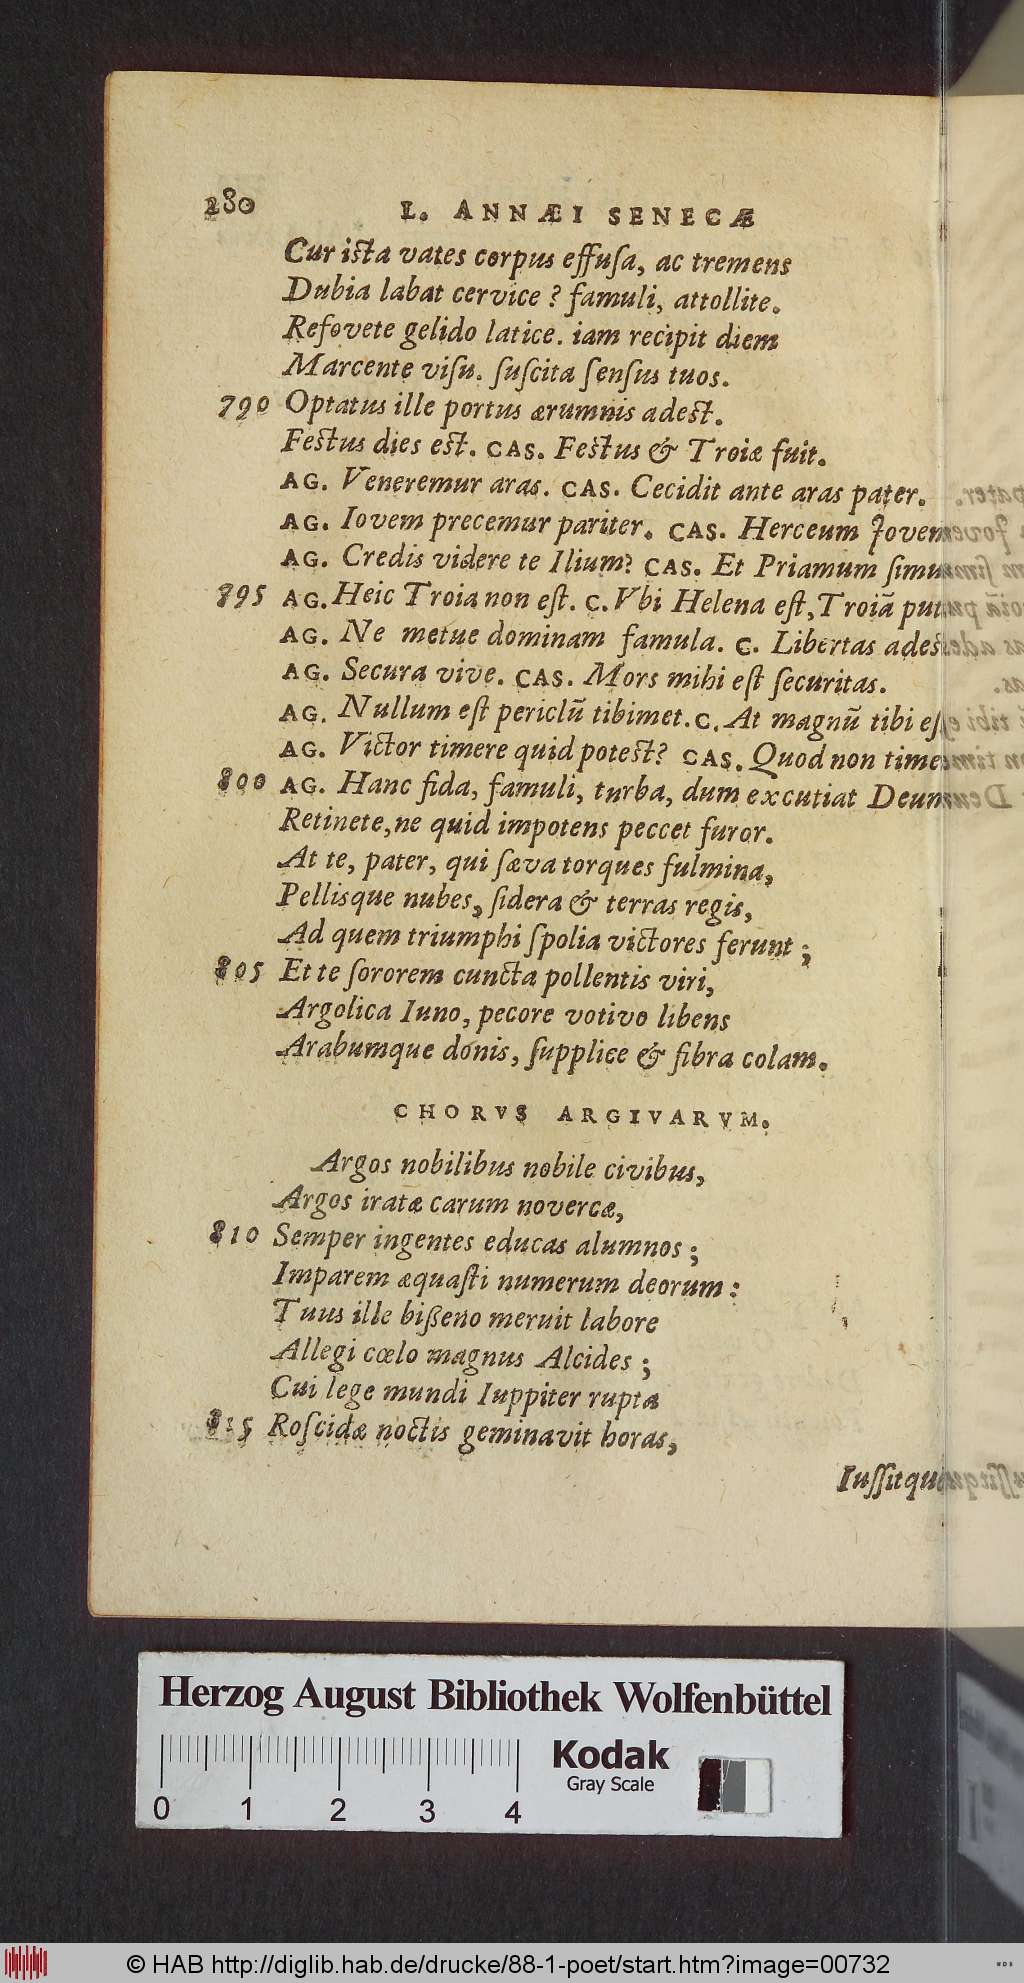 280 L. ANNÆI SENECÆ
Cur ista vates corpus effusa, ac tremens
Dubia labat cervice? famuli, attollite.
Refovete gelido latice. iam recipit diem
Marcente visu. suscita sensus tuos.
790 Optatus ille portus ærumnis adest.
Festus dies est. CAS. Festus & Troiæ fuit.
AG. Veneremur aras. CAS. Cecidit ante aras pater.
AG. Iovem precemur pariter. CAS. Herceum Jovem
AG. Credis videre te Ilium? CAS. Et Priamum simu
895 AG. Heic Troia non est. C. Vbi Helena est, Troiã put
AG. Ne metue dominam famula. C. Libertas ades
AG. Secura vive. CAS. Mors mihi est securitas.
AG. Nullum est periclũ tibimet. C. At magnũ tibi es
AG. Victor timere quid potest? CAS. Quod non time
800 AG. Hanc fida, famuli, turba, dum excutiat Deum
Retinete, ne quid impotens peccet furor.
At te, pater, qui sæva torques fulmina,
Pellisque nubes, sidera & terras regis,
Ad quem triumphi spolia victores ferunt;
805 Et te sororem cuncta pollentis viri,
Argolica Iuno, pecore votivo libens
Arabumque donis, supplice & fibra colam.
CHORVS ARGIVARVM.
Argos nobilibus nobile civibus,
Argos iratæ carum novercæ,
810 Semper ingentes educas alumnos;
Imparem æquasti numerum deorum:
Tuus ille bißeno meruit labore
Allegi cœlo magnus Alcides;
Cui lege mundi Iuppiter rupta
815 Roscidæ noctis geminavit horas,
Iussitque
Herzog August Bibliothek Wolfenbüttel
0 1 2 3 4
Kodak
Gray Scale
© HAB http://diglib.hab.de/drucke/88-1-poet/start.htm?image=00732